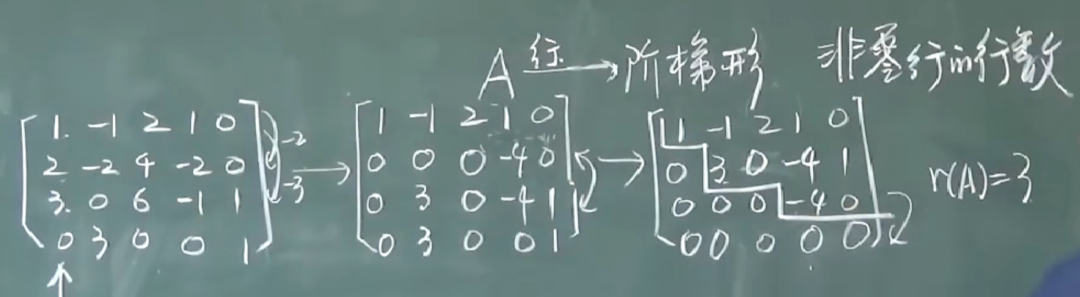 A 行→ 阶梯形 非零行的行数
1 -1 2 1 0
2 -2 4 -2 0
3 0 6 -1 1
0 3 0 0 1
-2
-3
→
1 -1 2 1 0
0 0 0 -4 0
0 3 0 -4 1
0 3 0 0 1
→
1 -1 2 1 0
0 3 0 -4 1
0 0 0 -4 0
0 0 0 0 0
r(A)=3